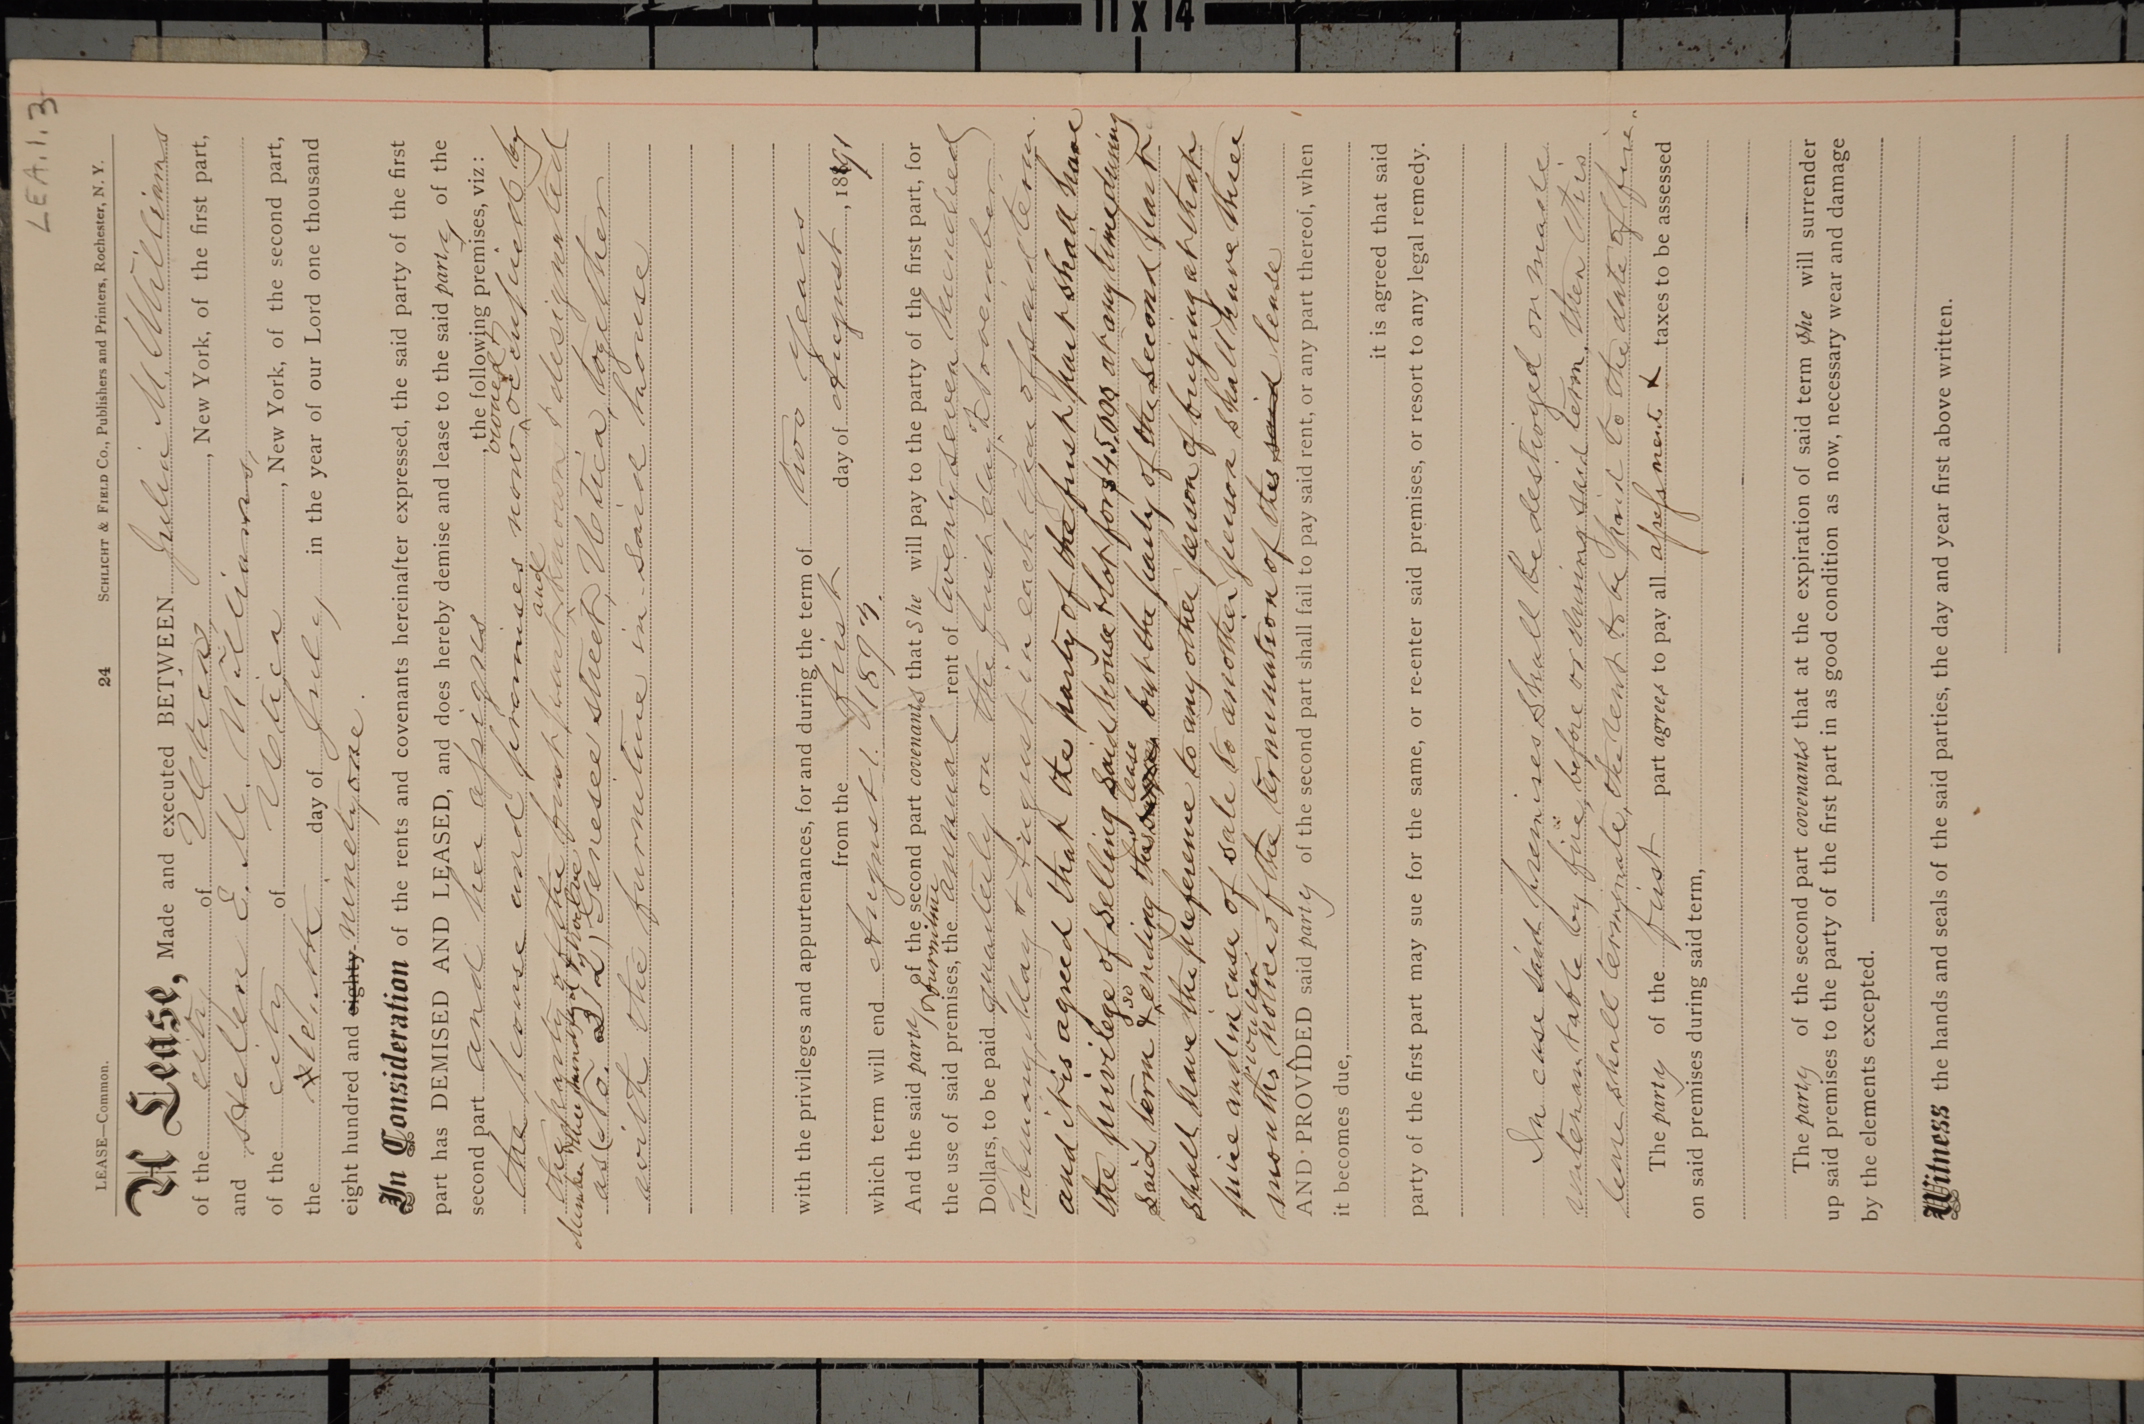 11 x 14
LEA.1.3
LEASE—Common. 24 SCHLICHT & FIELD CO., Publishers and Printers, Rochester, N. Y.
A Lease, Made and executed BETWEEN Julia M. Williams
of the city of Utica, New York, of the first part,
and Hellen E. M. Williams,
of the city of Utica, New York, of the second part,
the day of July in the year of our Lord one thousand
eight hundred and eighty ninety one.
In Consideration of the rents and covenants hereinafter expressed, the said party of the first
part has DEMISED AND LEASED, and does hereby demise and lease to the said party of the
second part and her assigns, the following premises, viz:
owned &
the house and premises now occupied by
and
the party of the first part, known & designated
number three hundred & twelve
as No. 312, Genesee street, Utica, together
with the furniture in said house
with the privileges and appurtenances, for and during the term of two years
from the first day of August, 1891
which term will end August 1. 1893.
And the said party of the second part covenants that She will pay to the party of the first part, for
& furniture
the use of said premises, the annual rent of twenty seven hundred
Dollars, to be paid quarterly on the first day of November
February May & August in each year of said term.
and it is agreed that the party of the first part shall have
the privilege of selling said house & lot for $45,000 at any time during
so lease
said term & ending this but the party of the second part
shall have the preference to any other person of buying at that
price and in case of sale to another person shall have three
previous
months notice of the termination of the said lease
AND PROVIDED said party of the second part shall fail to pay said rent, or any part thereof, when
it becomes due,
it is agreed that said
party of the first part may sue for the same, or re-enter said premises, or resort to any legal remedy.
In case said premises shall be destroyed or made
untenantable by fire, before or during said term, then this
lease shall terminate, the rent to be paid to the date of fire.
The party of the first part agrees to pay all assessments & taxes to be assessed
on said premises during said term,
The party of the second part covenants that at the expiration of said term she will surrender
up said premises to the party of the first part in as good condition as now, necessary wear and damage
by the elements excepted.
Witness the hands and seals of the said parties, the day and year first above written.